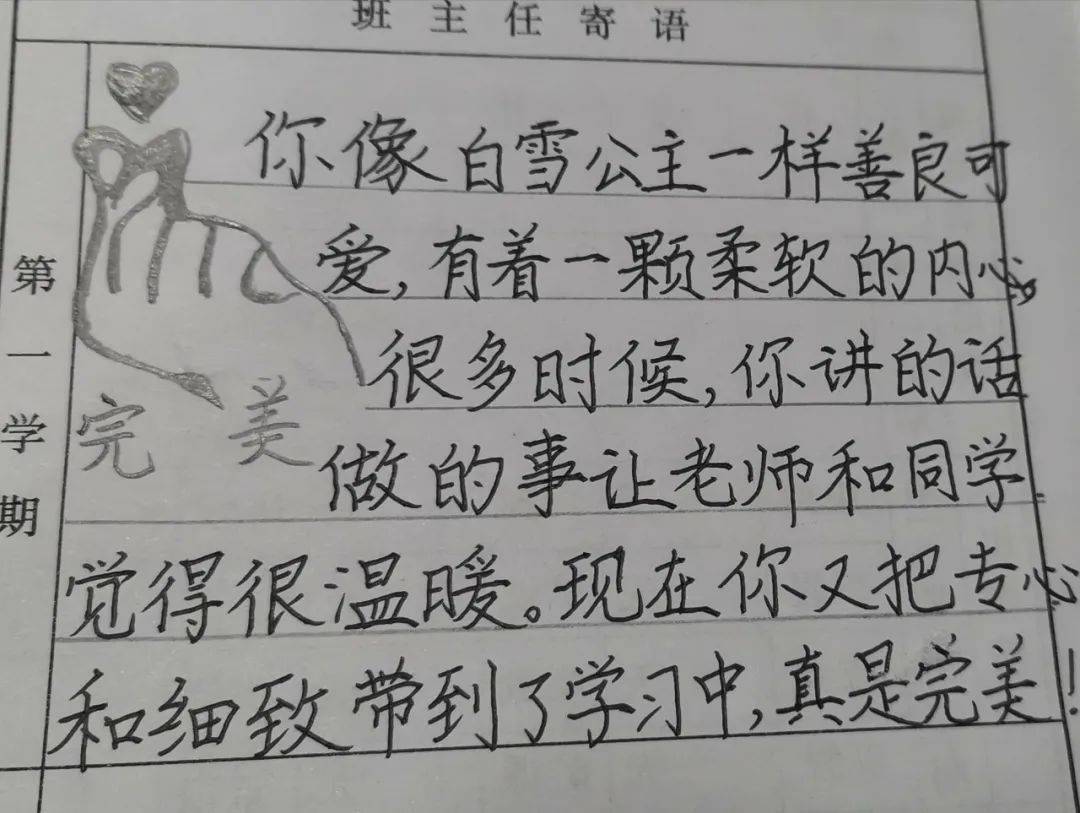 班主任寄语
第一学期
你像白雪公主一样善良可
爱,有着一颗柔软的内心。
很多时候,你讲的话
做的事让老师和同学
觉得很温暖。现在你又把专心
和细致带到了学习中,真是完美!
完美